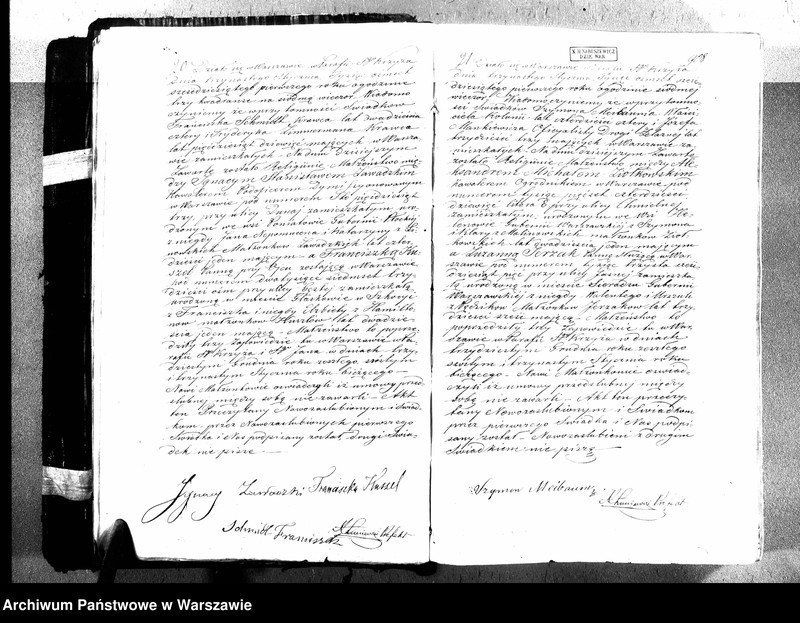 Działo się w Warszawie w Parafii Sgo Krzyża
dnia trzynastego Stycznia tysiąc ośmset
sześćdziesiątego pierwszego roku o godzinie
trzy kwadranse na siódmą wieczór. Wiadomo
czynimy że w przytomności Świadków
Franciszka Schmidt, Krawca lat dwadzieścia
cztery i Fryderyka Krawca
lat pięćdziesiąt dziewięć mających w Warsza-
wie zamieszkałych. Na dniu dzisiejszym
zawarte zostało Religijne Małżeństwo mię-
dzy Ignacym Stanisławem Zawadzkim
Kawalerem
w Warszawie pod numerem Sto pięćdziesiąt
trzy przy ulicy Dunaj zamieszkałym, uro-
dzonym we wsi Poniatowie Gubernii Płockiej
z niegdy Jana Nepomucena i Katarzyny z
Małżonków Zawadzkich lat czter-
dzieści jeden mającym a Franciszką Ku-
szel Panną przy Ojcu zostającą w Warszawie
pod numerem dwa tysiące siedmset trzy-
dzieści ośm przy ulicy zamieszkałą
urodzoną w mieście Glaskowie w Szkocyi
z Franciszka i niegdy Elżbiety z Hamilto-
nów małżonków lat dwadzie-
ścia jeden mającą. Małżeństwo to poprze-
dziły trzy Zapowiedzie tu w Warszawie w Pa-
rafii Sgo Krzyża i Sgo Jana w dniach trzy-
dziestym Grudnia roku zeszłego, szóstym
i trzynastym Stycznia roku bieżącego
Nowi Małżonkowie oświadczyli iż umowy przed-
ślubnej między sobą nie zawarli Akt
ten Przeczytany Nowozaślubionym i Świad-
kom, przez Nowozaślubionych pierwszego
Świadka i Nas podpisany został, drugi Świa-
dek nie pisze
Ignacy Zawadzki Franciszka Kussel
Schmidt Franciszek
X M NORBLEWICZ
DZIE. WAR.
91 Działo się w Warszawie w Parafii Sgo Krzyża
dnia trzynastego Stycznia tysiąc ośmset sześć-
dziesiątego pierwszego roku o godzinie siódmej
wieczór. Wiadomo czynimy że w przytomno-
ści Świadków Szymona Właści-
ciela Kolonii lat czterdzieści cztery i Józefa
Mankiewicza Oficyalisty Drogi Żelaznej lat
trzydzieści lat mających w Warszawie za-
mieszkałych. Na dniu dzisiejszym zawarte
zostało Religijne Małżeństwo między Ale-
ksandrem Michałem Ziółkowskim
kawalerem Ogrodnikiem w Warszawie pod
numerem tysiąc pięćset czterdzieści
dziewięć litera E przy ulicy Chmielnej
zamieszkałym, urodzonym we Wsi
Gubernii Warszawskiej z Szymona
i Klary z Malinowskich małżonków Ziół-
kowskich lat dwadzieścia jeden mającym
a Zuzanną Jerzak Panną Służącą w War-
szawie pod numerem tysiąc trzysta sześć-
dziesiąt pięć przy ulicy zamieszka-
łą urodzoną w mieście Sieradzu Gubernii
Warszawskiej z niegdy Walentego i Urszuli
z Małżonków Jerzaków lat trzy-
dzieści sześć mającą. Małżeństwo to
poprzedziły trzy Zapowiedzie tu w War-
szawie w Parafii Sgo Krzyża w dniach
trzydziestym Grudnia roku zeszłego
szóstym i trzynastym Stycznia roku
bieżącego. Nowi Małżonkowie oświad-
czyli iż umowy przedślubnej między
sobą nie zawarli. Akt ten przeczy-
tany Nowozaślubionym i Świadkom
przez pierwszego Świadka i Nas podpi-
sany został. Nowozaślubieni z drugim
Świadkiem nie piszą
Szymon
Archiwum Państwowe w Warszawie